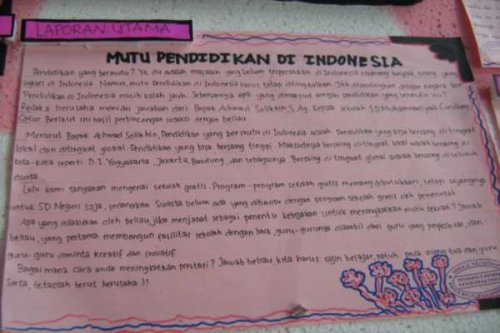 LAPORAN UTAMA
MUTU PENDIDIKAN DI INDONESIA
Pendidikan yang bermutu? Ya, itu adalah masalah yang belum terpecahkan di Indonesia memang banyak orang yang
sukses di Indonesia. Namun mutu pendidikan di Indonesia harus tetap ditingkatkan. Jika dibandingkan dengan negara lain
Pendidikan di Indonesia masih kalah jauh. Sebenarnya apa yang dimaksud dengan pendidikan yang bermutu itu?
Redaksi berusaha mencari jawaban dari Bapak Achmad Solikhin, S.Ag Kepala sekolah SD Muhammadiyah
Berikut ini hasil perbincangan masih dengan beliau.
Menurut Bapak Achmad Solikhin, Pendidikan yang bermutu di Indonesia adalah Pendidikan yang bisa bersaing di tingkat
lokal dan ditingkat global. Pendidikan yang bisa bersaing tinggi. Maksudnya bersaing di tingkat lokal adalah bersaing di
kota-kota seperti D.I Yogyakarta, Jakarta, Bandung, dan sebagainya. Bersaing di tingkat global adalah bersaing di seluruh
dunia.
Lalu bami tanyakan mengenai sekolah gratis. Program-program sekolah gratis memang dibutuhkan, tetapi sayangnya
untuk SD Negeri saja, sedangkan Swasta belum ada yang dibantu dengan program sekolah gratis oleh pemerintah.
Apa yang dilakukan oleh beliau jika menjabat sebagai penentu kebijakan untuk meningkatkan mutu sekolah? Jawab
beliau, yang pertama membangun fasilitas sekolah dengan baik, guru-gurunya diambil dari guru yang profesional, dan
guru-guru diminta kreatif dan inovatif.
Bagaimana cara anda meningkatkan prestasi? Jawab beliau, kita harus rajin belajar, patuh pada orang tua dan guru
Serta, tetaplah terus berusaha!!